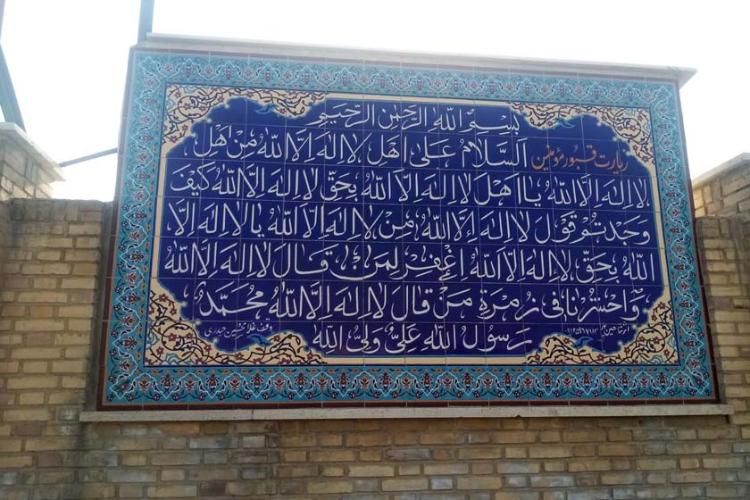 بِسْمِ اللهِ الرَّحْمٰنِ الرَّحِيمِ
زيارت قبور مؤمنین اَلسَّلامُ عَلىٰ اَهْلِ لا اِلٰهَ اِلَّا اللهُ مِنْ اَهْلِ
لا اِلٰهَ اِلَّا اللهُ يا اَهْلَ لا اِلٰهَ اِلَّا اللهُ بِحَقِّ لا اِلٰهَ اِلَّا اللهُ كَيْفَ
وَجَدْتُمْ قَوْلَ لا اِلٰهَ اِلَّا اللهُ مِنْ لا اِلٰهَ اِلَّا اللهُ يا لا اِلٰهَ اِلَّا
اللهُ بِحَقِّ لا اِلٰهَ اِلَّا اللهُ اِغْفِرْ لِمَنْ قالَ لا اِلٰهَ اِلَّا اللهُ
وَاحْشُرْنا فى زُمْرَةِ مَنْ قالَ لا اِلٰهَ اِلَّا اللهُ مُحَمَّدٌ
رَسُولُ اللهِ عَلِىٌّ وَلِىُّ اللهِ